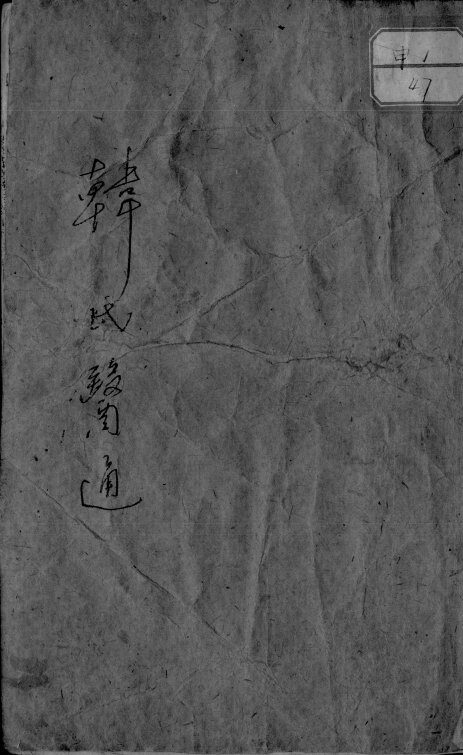 甲1
47
韓氏醫通